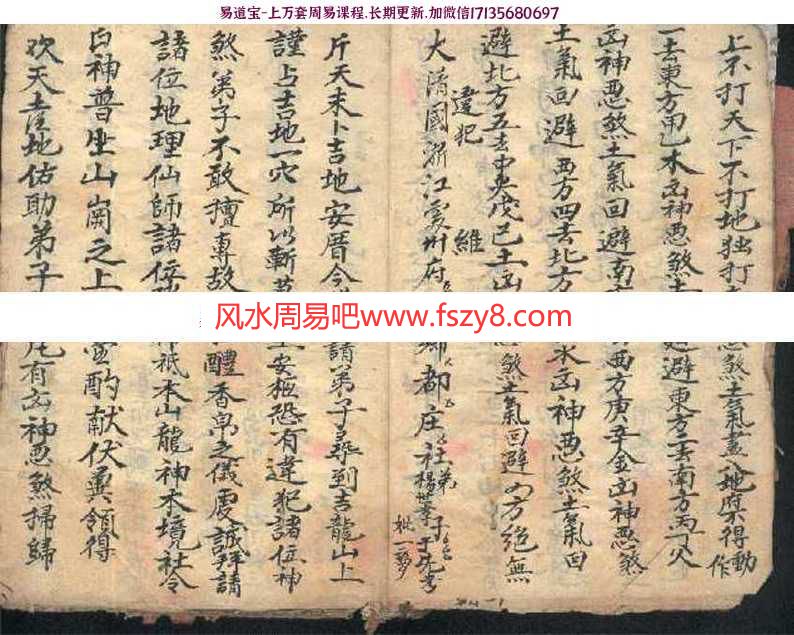 易道宝-上万套周易课程.长期更新.加微信17135680697
上不打天下不打地独打
悪煞土氣盡入地府不得動作
一去東方甲乙木凶神悪煞土
避東方二去南方丙丁火
凶神悪煞土氣回避南
西方庚辛金凶神悪煞
土氣回避西方四去北方
水凶神悪煞土氣回
避北方五去中央戊己土凶
悪煞土氣回避四方絕無
違犯
維
大清國浙江處州府
鄉都庄社弟子
斤天未卜吉地安厝今
請弟子尋到吉龍山上
謹占吉地一穴所以斬
安柩恐有違犯諸位神
煞弟子不敢擅專故
醴香帛之儀虔誠拜請
諸位地理仙師諸位
神祇本山龍神本境社令
白神普坐山崗之上
酌献伏兾領得
欢天喜地佑助弟子
有凶神悪煞掃歸
风水周易吧www.fszy8.com